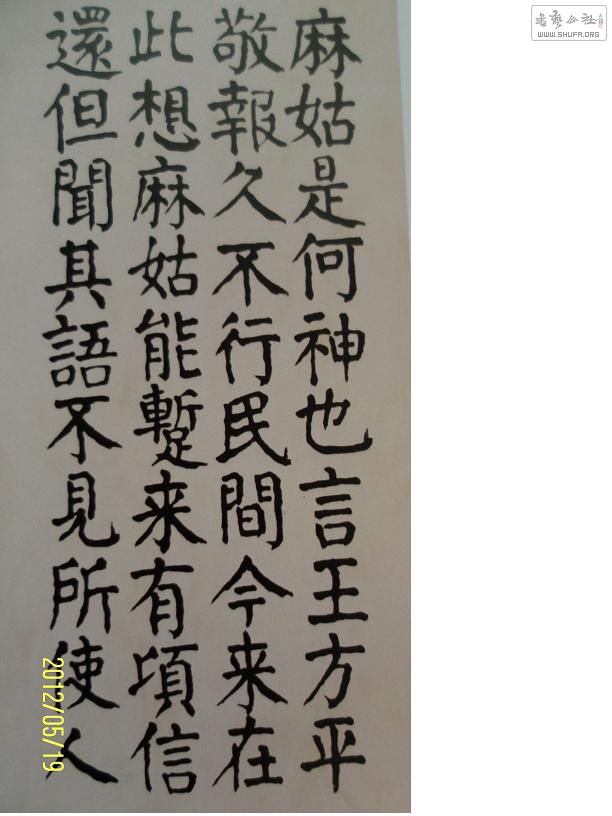 麻姑是何神也言王方平
敬報久不行民間今来在
此想麻姑能蹔来有頃信
還但聞其語不見所使人
2012/05/19
書藝公社
WWW.SHUFA.ORG